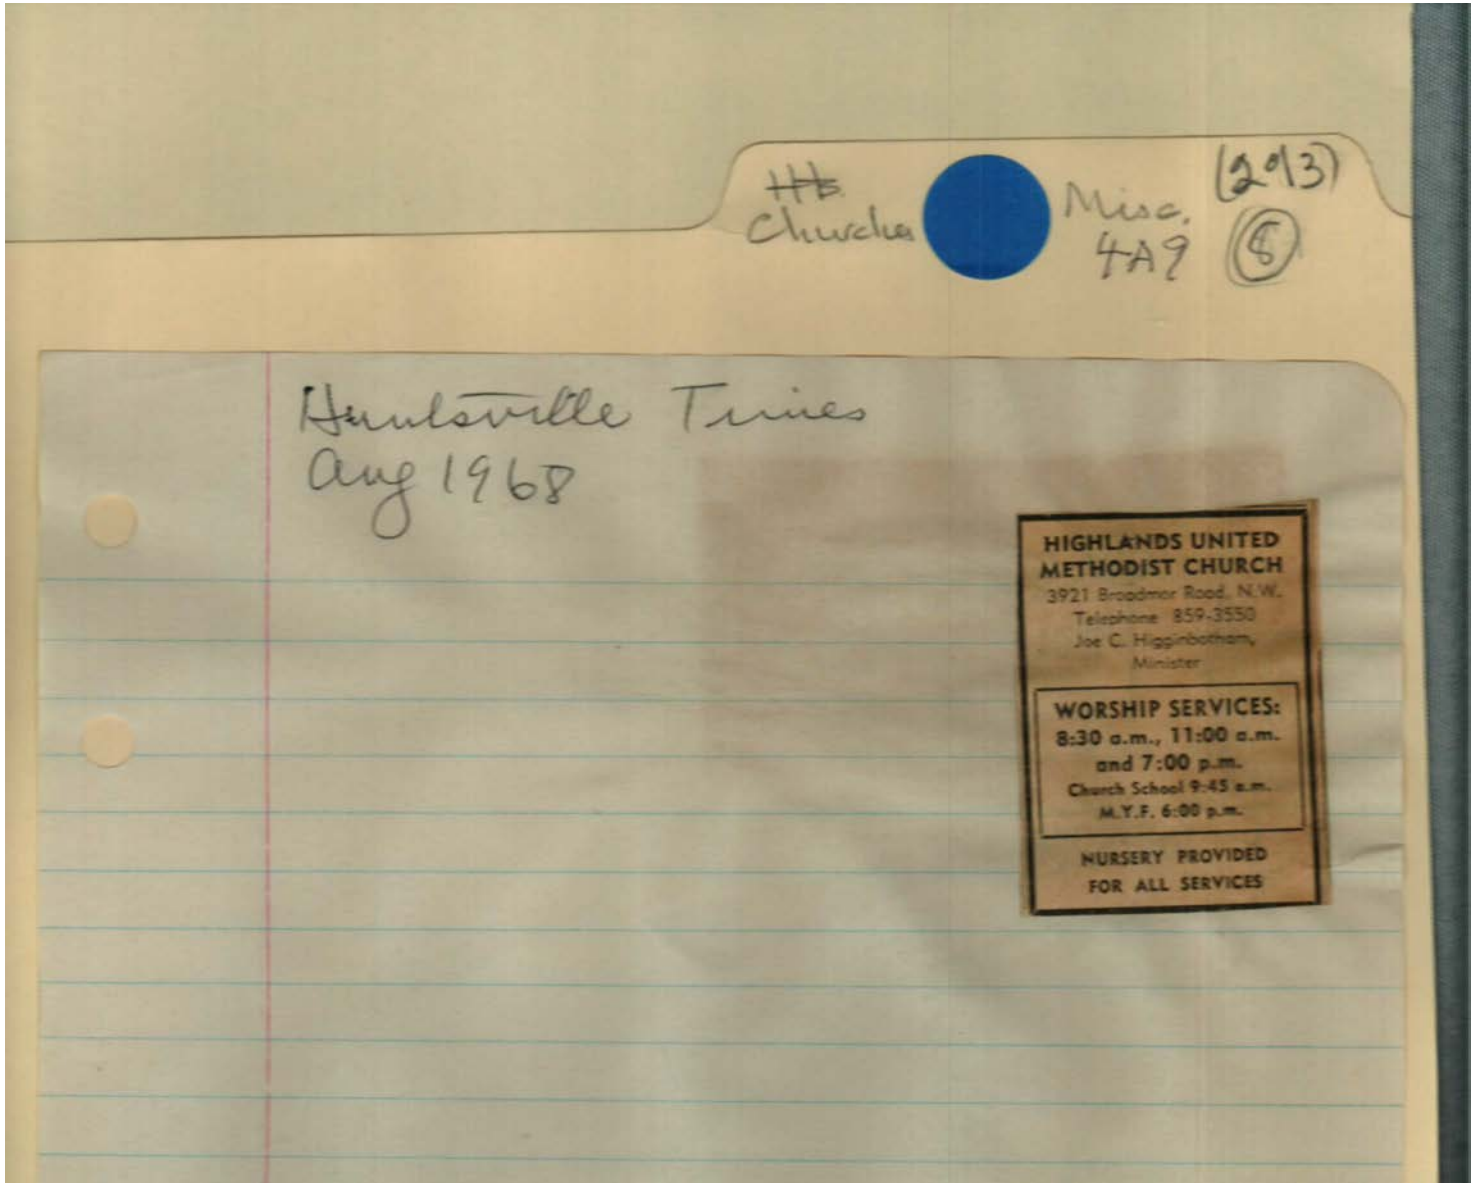 Churches
Misc. (2 of 3)
4A9 8
Huntsville Times
Aug 1968
HIGHLANDS UNITED
METHODIST CHURCH
3921 Broadmor Road, N.W.
Telephone 859-3550
Joe C. Higginbotham,
Minister
WORSHIP SERVICES:
8:30 a.m., 11:00 a.m.
and 7:00 p.m.
Church School 9:45 a.m.
M.Y.F. 6:00 p.m.
NURSERY PROVIDED
FOR ALL SERVICES